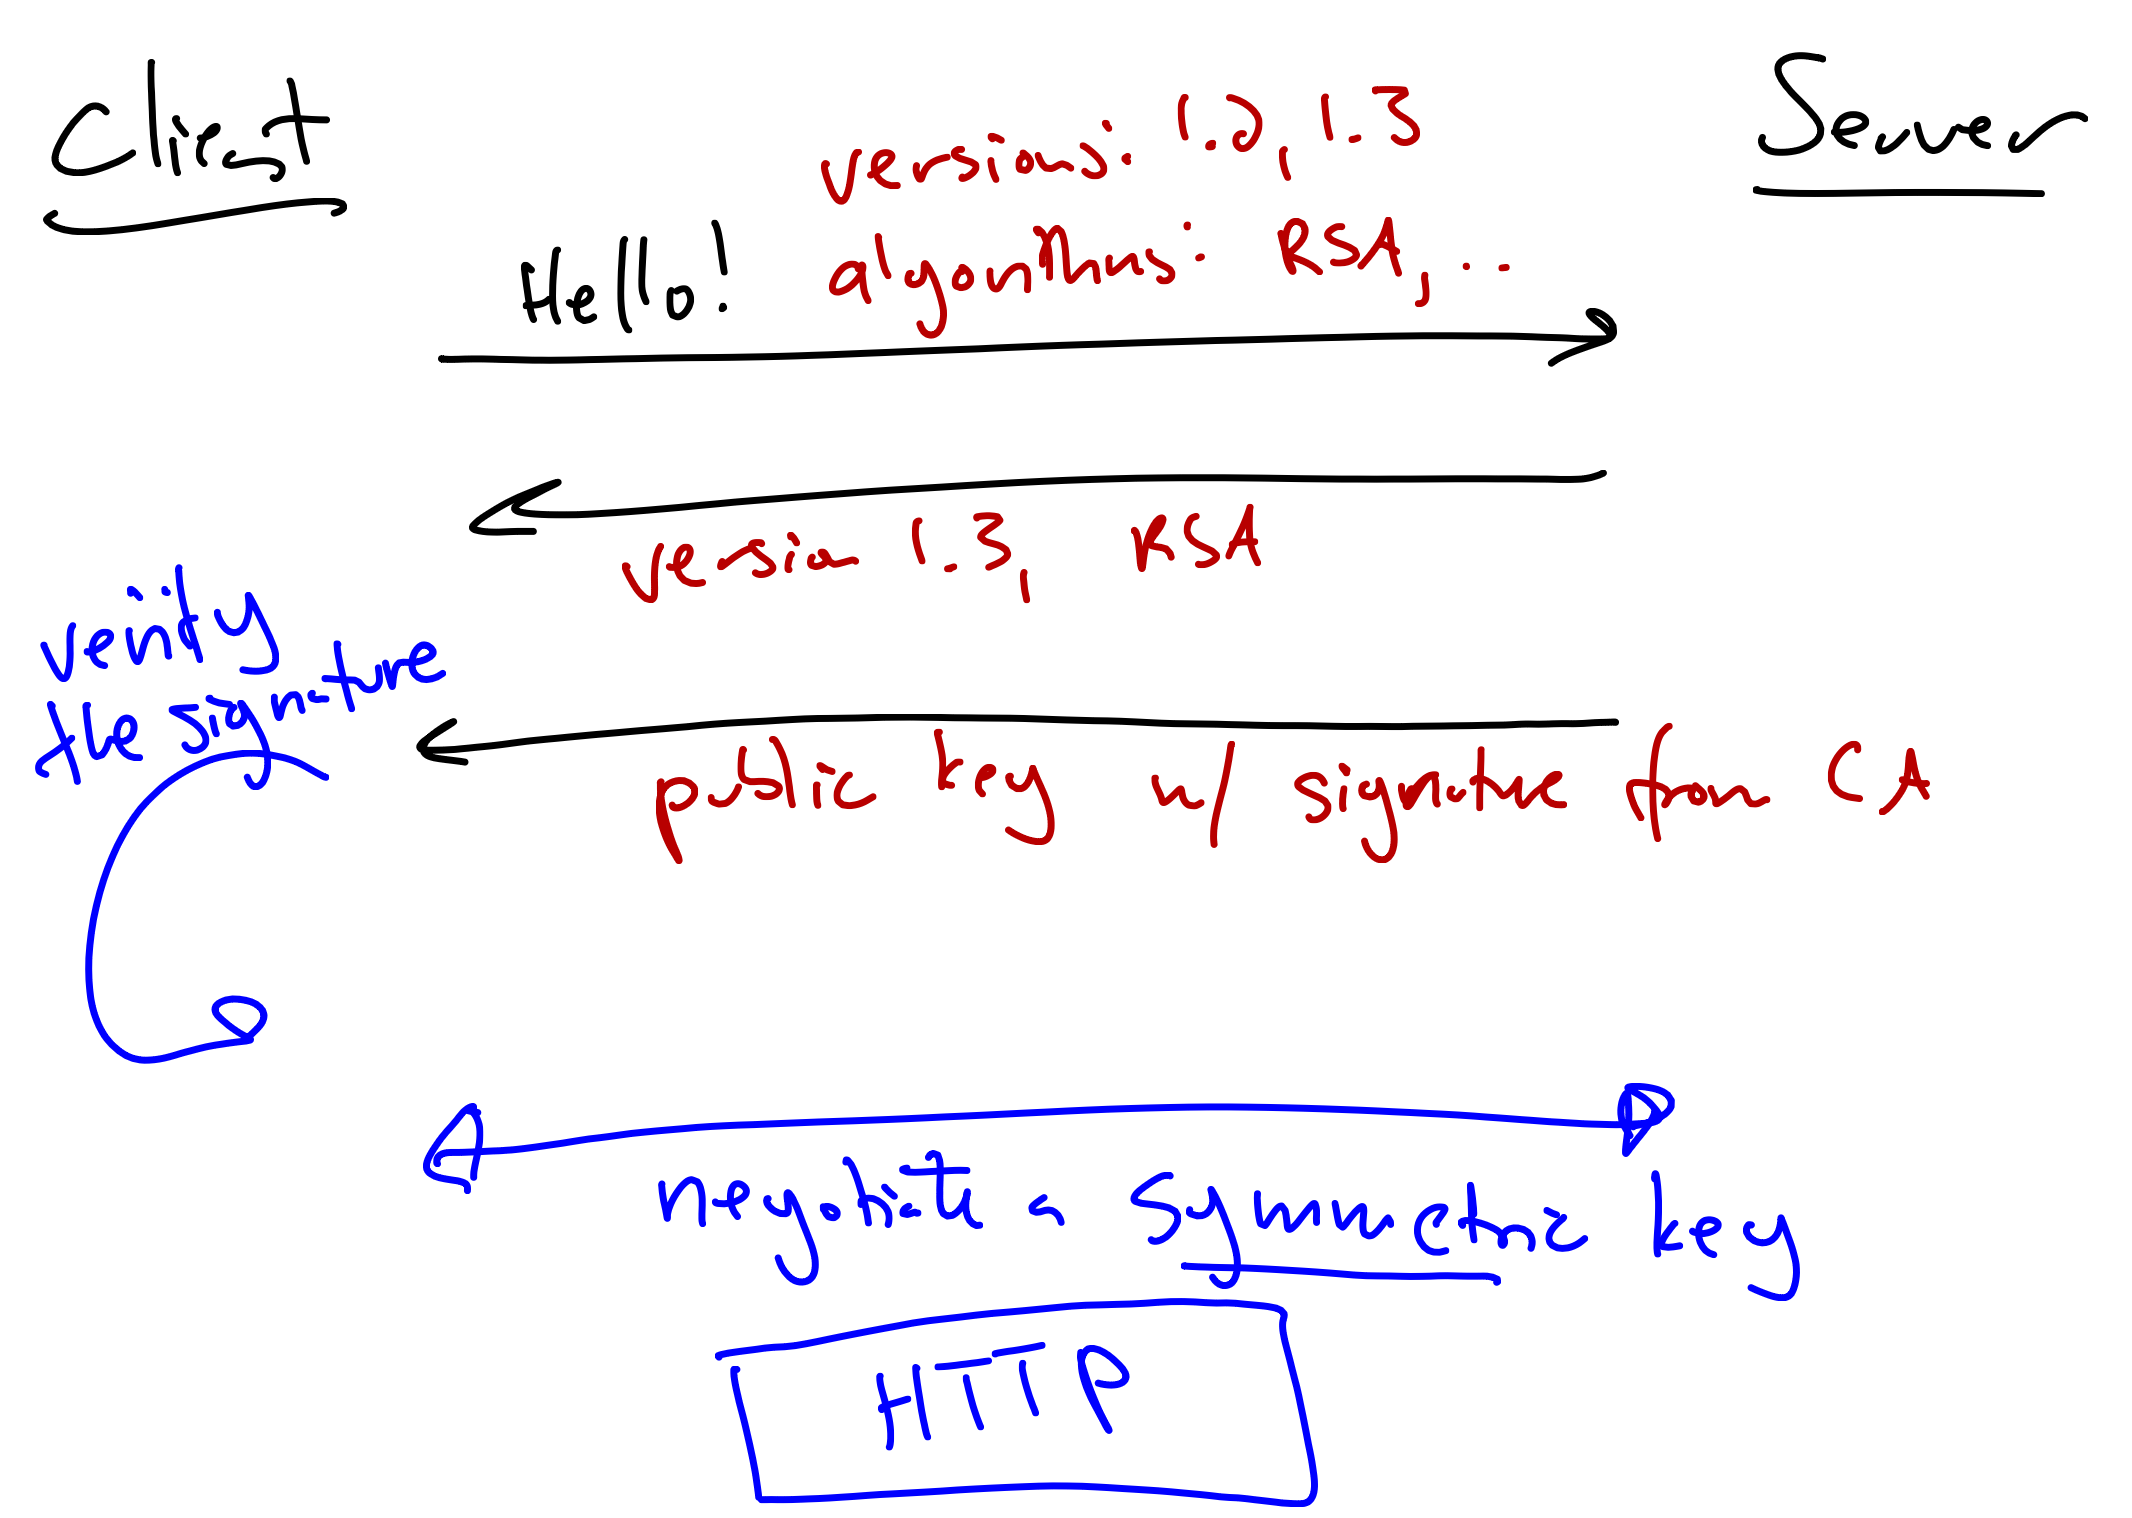 Client
Server
versions: 1.2, 1.3
Hello!
algorithms: RSA, ...
version 1.3, RSA
verify
the signature
public key w/ signature from CA
negotiate a symmetric key
HTTP